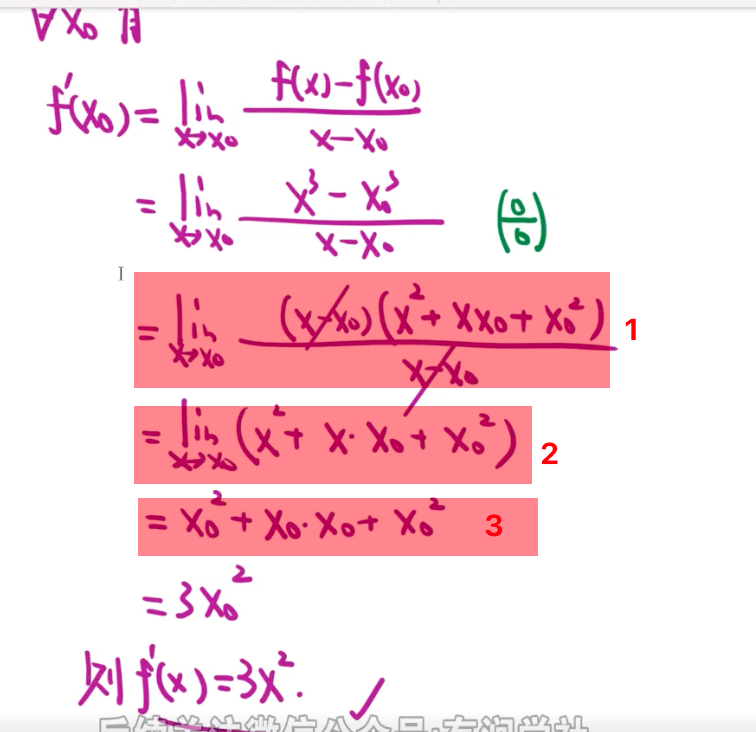 ∀x₀ 有
f'(x₀) = lim x→x₀ (f(x)-f(x₀))/(x-x₀)
= lim x→x₀ (x³-x₀³)/(x-x₀) (0/0)
= lim x→x₀ (x-x₀)(x²+xx₀+x₀²)/(x-x₀) 1
= lim x→x₀ (x²+x·x₀+x₀²) 2
= x₀²+x₀·x₀+x₀² 3
= 3x₀²
则 f'(x)=3x². ✓